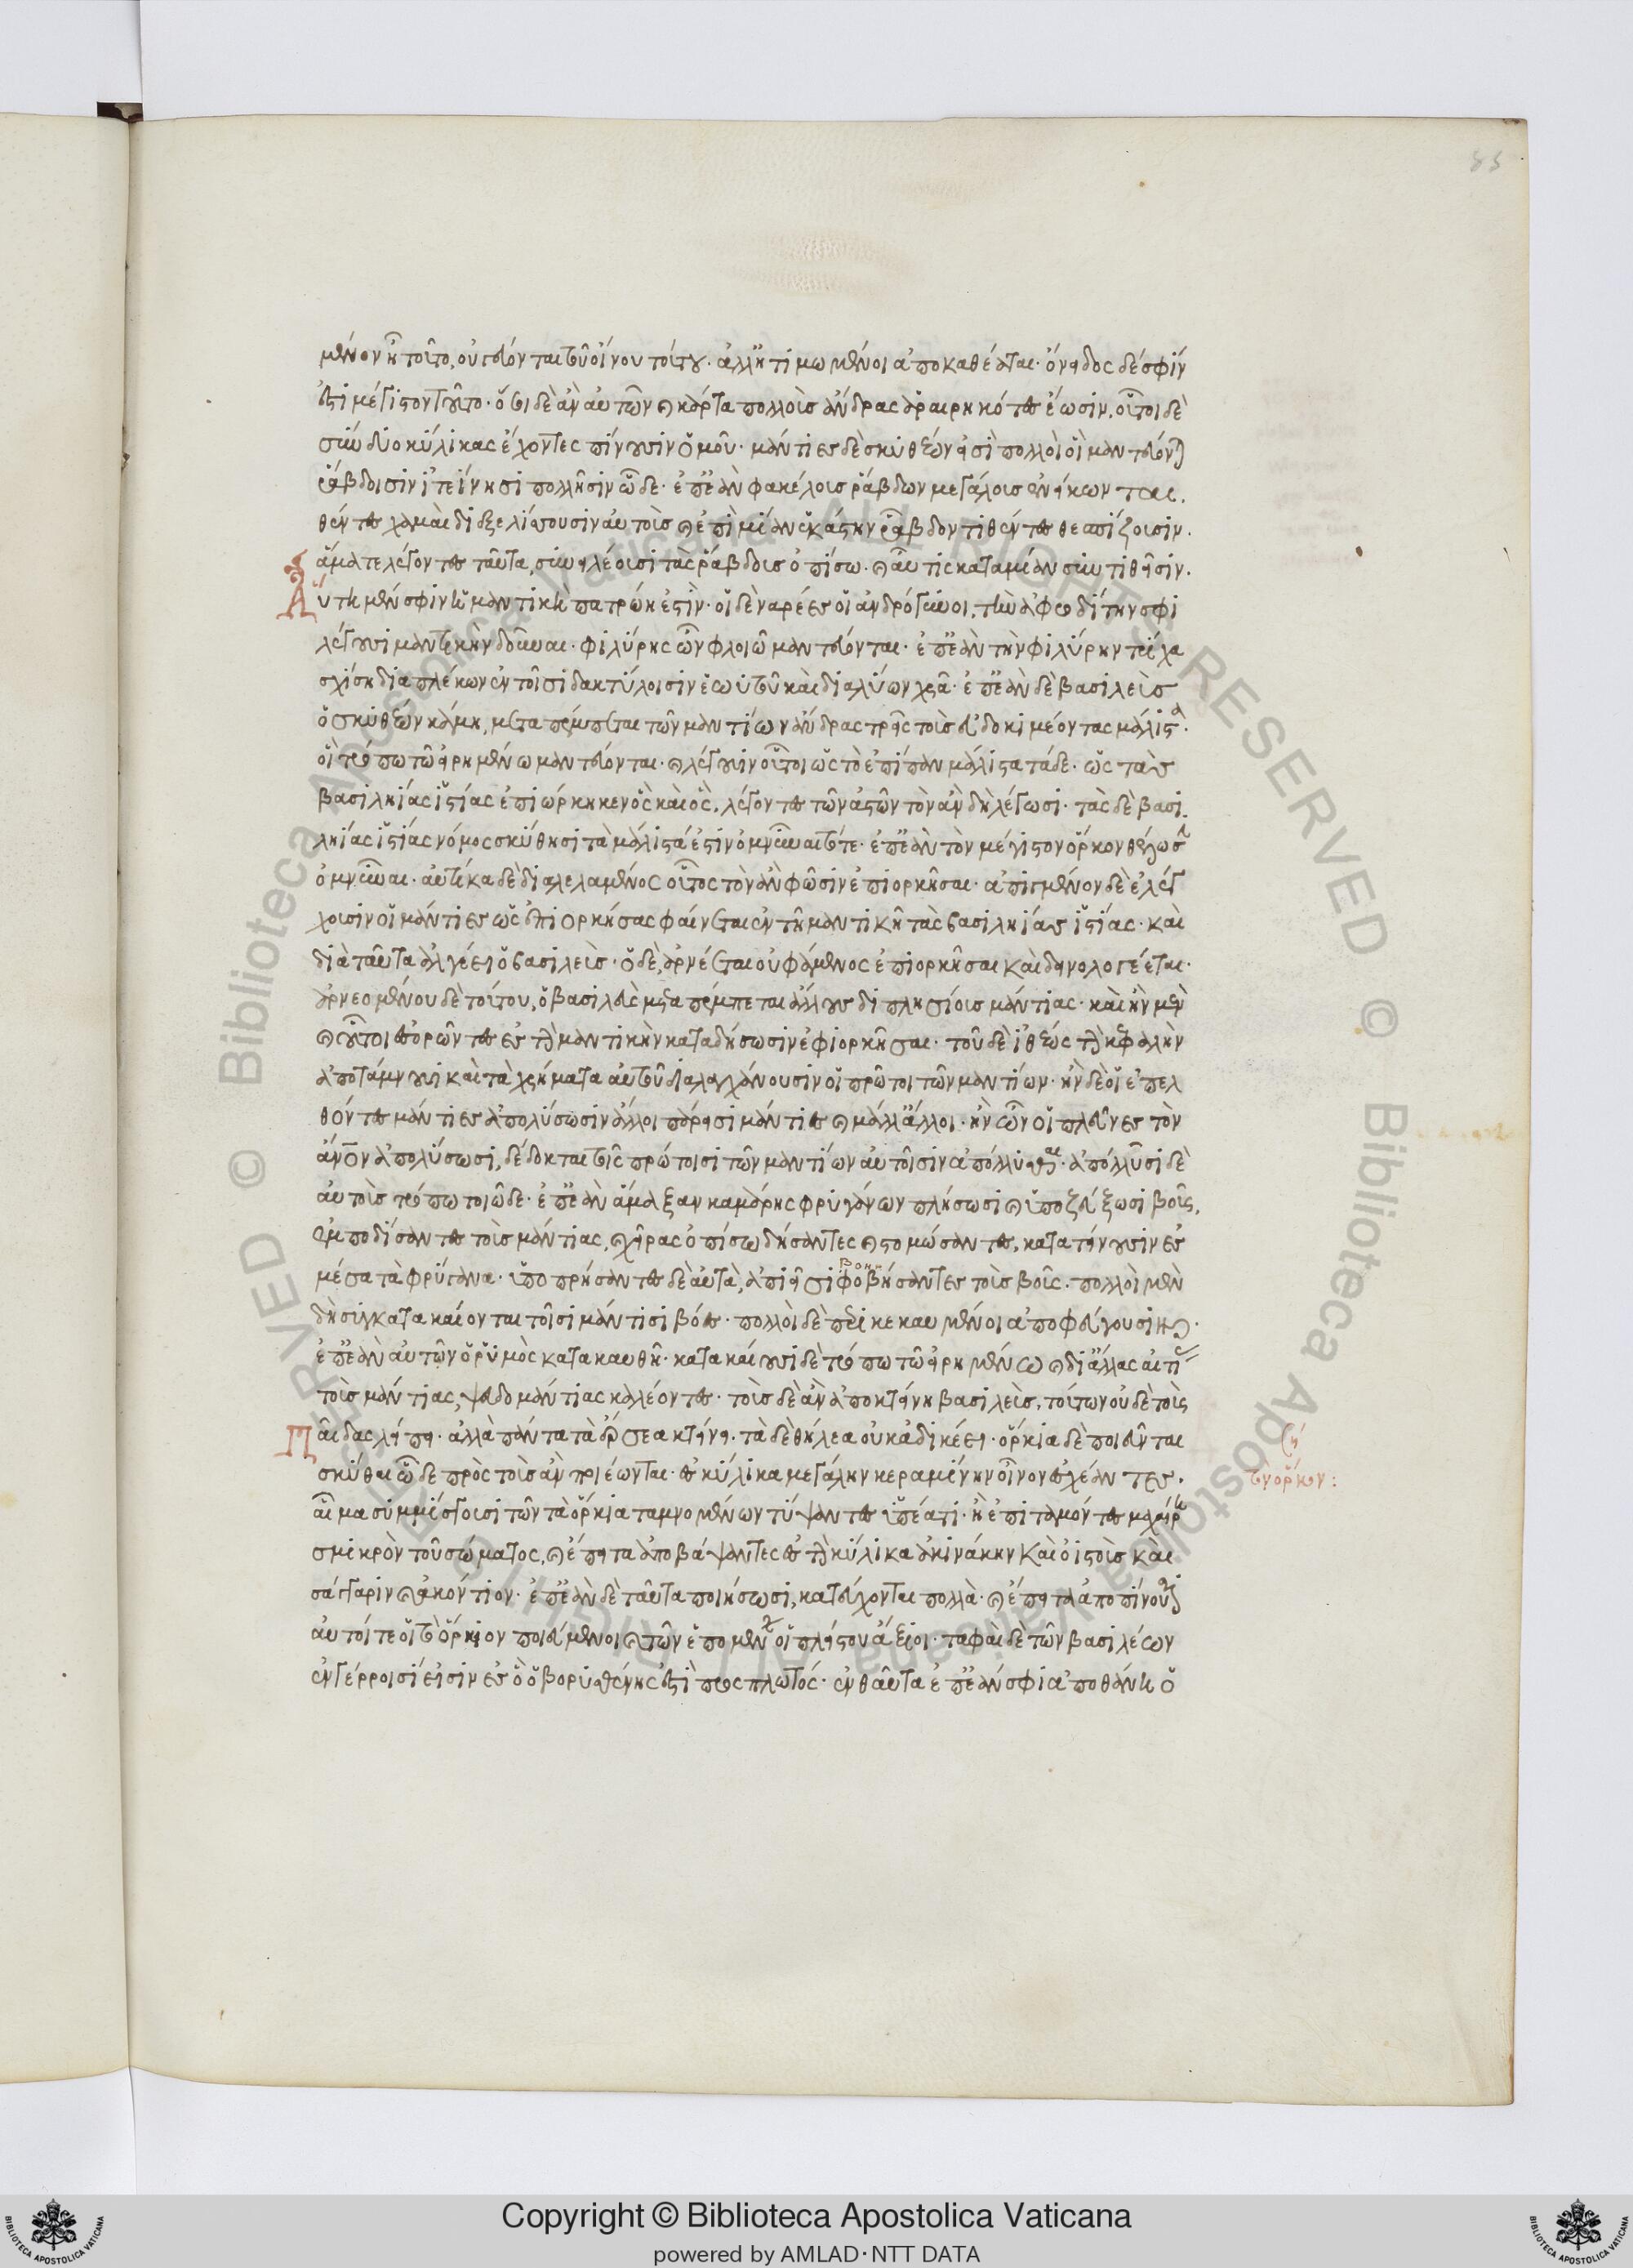 μένον ἢ τοῦτο, οὐ γεύονται τοῦ οἴνου τούτου. ἀλλ' ἠτιμωμένοι ἀποκαθέαται. ὄνειδος δέ σφιν
ἐστὶ μέγιστον τοῦτο. ὅσοι δὲ ἂν αὐτῶν καὶ κάρτα πολλοὺς ἄνδρας ἀραιρηκότες ἔωσιν. οὗτοι δὲ
σὺν δύο κύλικας ἔχοντες πίνουσιν ὁμοῦ. μάντιες δὲ σκυθέων εἰσὶ πολλοὶ οἳ μαντεύονται
ῥάβδοισιν ἰτεΐνησι πολλῆσιν ὧδε. ἐπεὰν φακέλους ῥάβδων μεγάλους ἐνείκωνται.
θέντες χαμαὶ διεξελίσσουσιν αὐτοὺς καὶ ἐπὶ μίαν ἑκάστην ῥάβδον τιθέντες θεσπίζουσιν.
ἅμα τε λέγοντες ταῦτα, συνειλέουσι τὰς ῥάβδους ὀπίσω. καὶ αὖτις κατὰ μίαν συντιθεῖσιν.
Αὕτη μέν σφιν ἡ μαντικὴ πατρώη ἐστίν. οἱ δὲ ἐναρέες οἱ ἀνδρόγυνοι, τὴν ἀφροδίτην σφι
λέγουσι μαντικὴν δοῦναι. φιλύρης ὦν φλοιῷ μαντεύονται. ἐπεὰν τὴν φιλύρην τρίχα
σχίσῃ διαπλέκων ἐν τοῖσι δακτύλοισιν ἑωυτοῦ καὶ διαλύων χρᾷ. ἐπεὰν δὲ βασιλεὺς
ὁ σκυθέων κάμῃ, μεταπέμπεται τῶν μαντίων ἄνδρας τρεῖς τοὺς εὐδοκιμέοντας μάλιστα.
οἳ τρόπῳ τῷ εἰρημένῳ μαντεύονται. καὶ λέγουσιν οὗτοι ὡς τὸ ἐπίπαν μάλιστα τάδε. ὡς τὰς
βασιληίας ἱστίας ἐπιώρκηκεν ὃς καὶ ὃς. λέγοντες τῶν ἀστῶν τὸν ἂν δὴ λέγωσι. τὰς δὲ βασι
ληίας ἱστίας νόμος σκύθησι τὰ μάλιστά ἐστιν ὀμνύναι τότε. ἐπεὰν τὸν μέγιστον ὅρκον θέλωσιν
ὀμνύναι. αὐτίκα δὲ διαλελαμμένος οὗτος τὸν ἂν φῶσιν ἐπιορκῆσαι. ἀπιγμένον δὲ ἐλέγ
χουσιν οἱ μάντιες ὡς ἐπιορκήσας φαίνεται ἐν τῇ μαντικῇ τὰς βασιληίας ἱστίας. καὶ
διὰ ταῦτα ἀλγέει ὁ βασιλεύς. ὁ δὲ, ἀρνέεται οὐ φάμενος ἐπιορκῆσαι καὶ δεινολογέεται.
ἀρνεομένου δὲ τούτου, ὁ βασιλεὺς μεταπέμπεται ἄλλους διπλησίους μάντιας. καὶ ἢν μὲν
καὶ οὗτοι ἐσορῶντες ἐς τὴν μαντικὴν καταδήσωσιν ἐφιορκῆσαι. τοῦ δὲ ἰθέως τὴν κεφαλὴν
ἀποτάμνουσι καὶ τὰ χρήματα αὐτοῦ διαλαγχάνουσιν οἱ πρῶτοι τῶν μαντίων. ἢν δὲ οἱ ἐπελ
θόντες μάντιες ἀπολύσωσιν ἄλλοι πάρεισι μάντιες καὶ μάλ' ἄλλοι. ἢν ὦν οἱ πλεῦνες τὸν
ἄνθρωπον ἀπολύσωσι, δέδοκται τοῖς πρώτοισι τῶν μαντίων αὐτοῖσιν ἀπόλλυσθαι. ἀπόλλυσι δὲ
αὐτοὺς τρόπῳ τοιῷδε. ἐπεὰν ἅμαξαν καμάρης φρυγάνων πλήσωσι καὶ ὑποζεύξωσι βοῦς,
ἐμποδίσαντες τοὺς μάντιας, καὶ χεῖρας ὀπίσω δήσαντες καὶ στομώσαντες, κατατείνουσιν ἐς
μέσα τὰ φρύγανα. ὑποπρήσαντες δὲ αὐτὰ, ἀπιεῖσι φοβήσαντες τοὺς βοῦς. πολλοὶ μὲν
δὴ συγκατακαίονται τοῖσι μάντισι βόες. πολλοὶ δὲ περικεκαυμένοι ἀποφεύγουσιν.
ἐπεὰν αὐτῶν ὁ ῥυμὸς κατακαυθῇ. κατακαίουσι δὲ τρόπῳ τῷ εἰρημένῳ καὶ δι' ἄλλας αἰτίας
τοὺς μάντιας, ψευδομάντιας καλέοντες. τοὺς δὲ ἂν ἀποκτείνῃ βασιλεύς, τούτων οὐδὲ τοὺς
Παῖδας λείπει. ἀλλὰ πάντα τὰ ἄρσεα κτείνει. τὰ δὲ θήλεα οὐκ ἀδικέει. ὅρκια δὲ ποιεῦνται
σκύθαι ὧδε πρὸς τοὺς ἂν ποιέωνται. ἐς κύλικα μεγάλην κεραμίνην οἶνον ἐγχέαντες.
αἷμα συμμίσγουσι τῶν τὰ ὅρκια ταμνομένων τύψαντες ὑπέατι. ἢ ἐπιταμόντες μαχαίρῃ
σμικρὸν τοῦ σώματος, καὶ ἔπειτα ἀποβάψαντες ἐς τὴν κύλικα ἀκινάκην καὶ ὀιστοὺς καὶ
σάγαριν καὶ ἀκόντιον. ἐπεὰν δὲ ταῦτα ποιήσωσι, κατεύχονται πολλὰ. καὶ ἔπειτα ἀποπίνουσι
αὐτοί τε οἱ τὸ ὅρκιον ποιεύμενοι καὶ τῶν ἑπομένων οἱ πλείστου ἄξιοι. ταφαὶ δὲ τῶν βασιλέων
ἐν γέρροισί εἰσιν ἐς ὃ ὁ βορυσθένης ἐστὶ προσπλωτός. ἐνθαῦτα ἐπεάν σφι ἀποθάνῃ ὁ